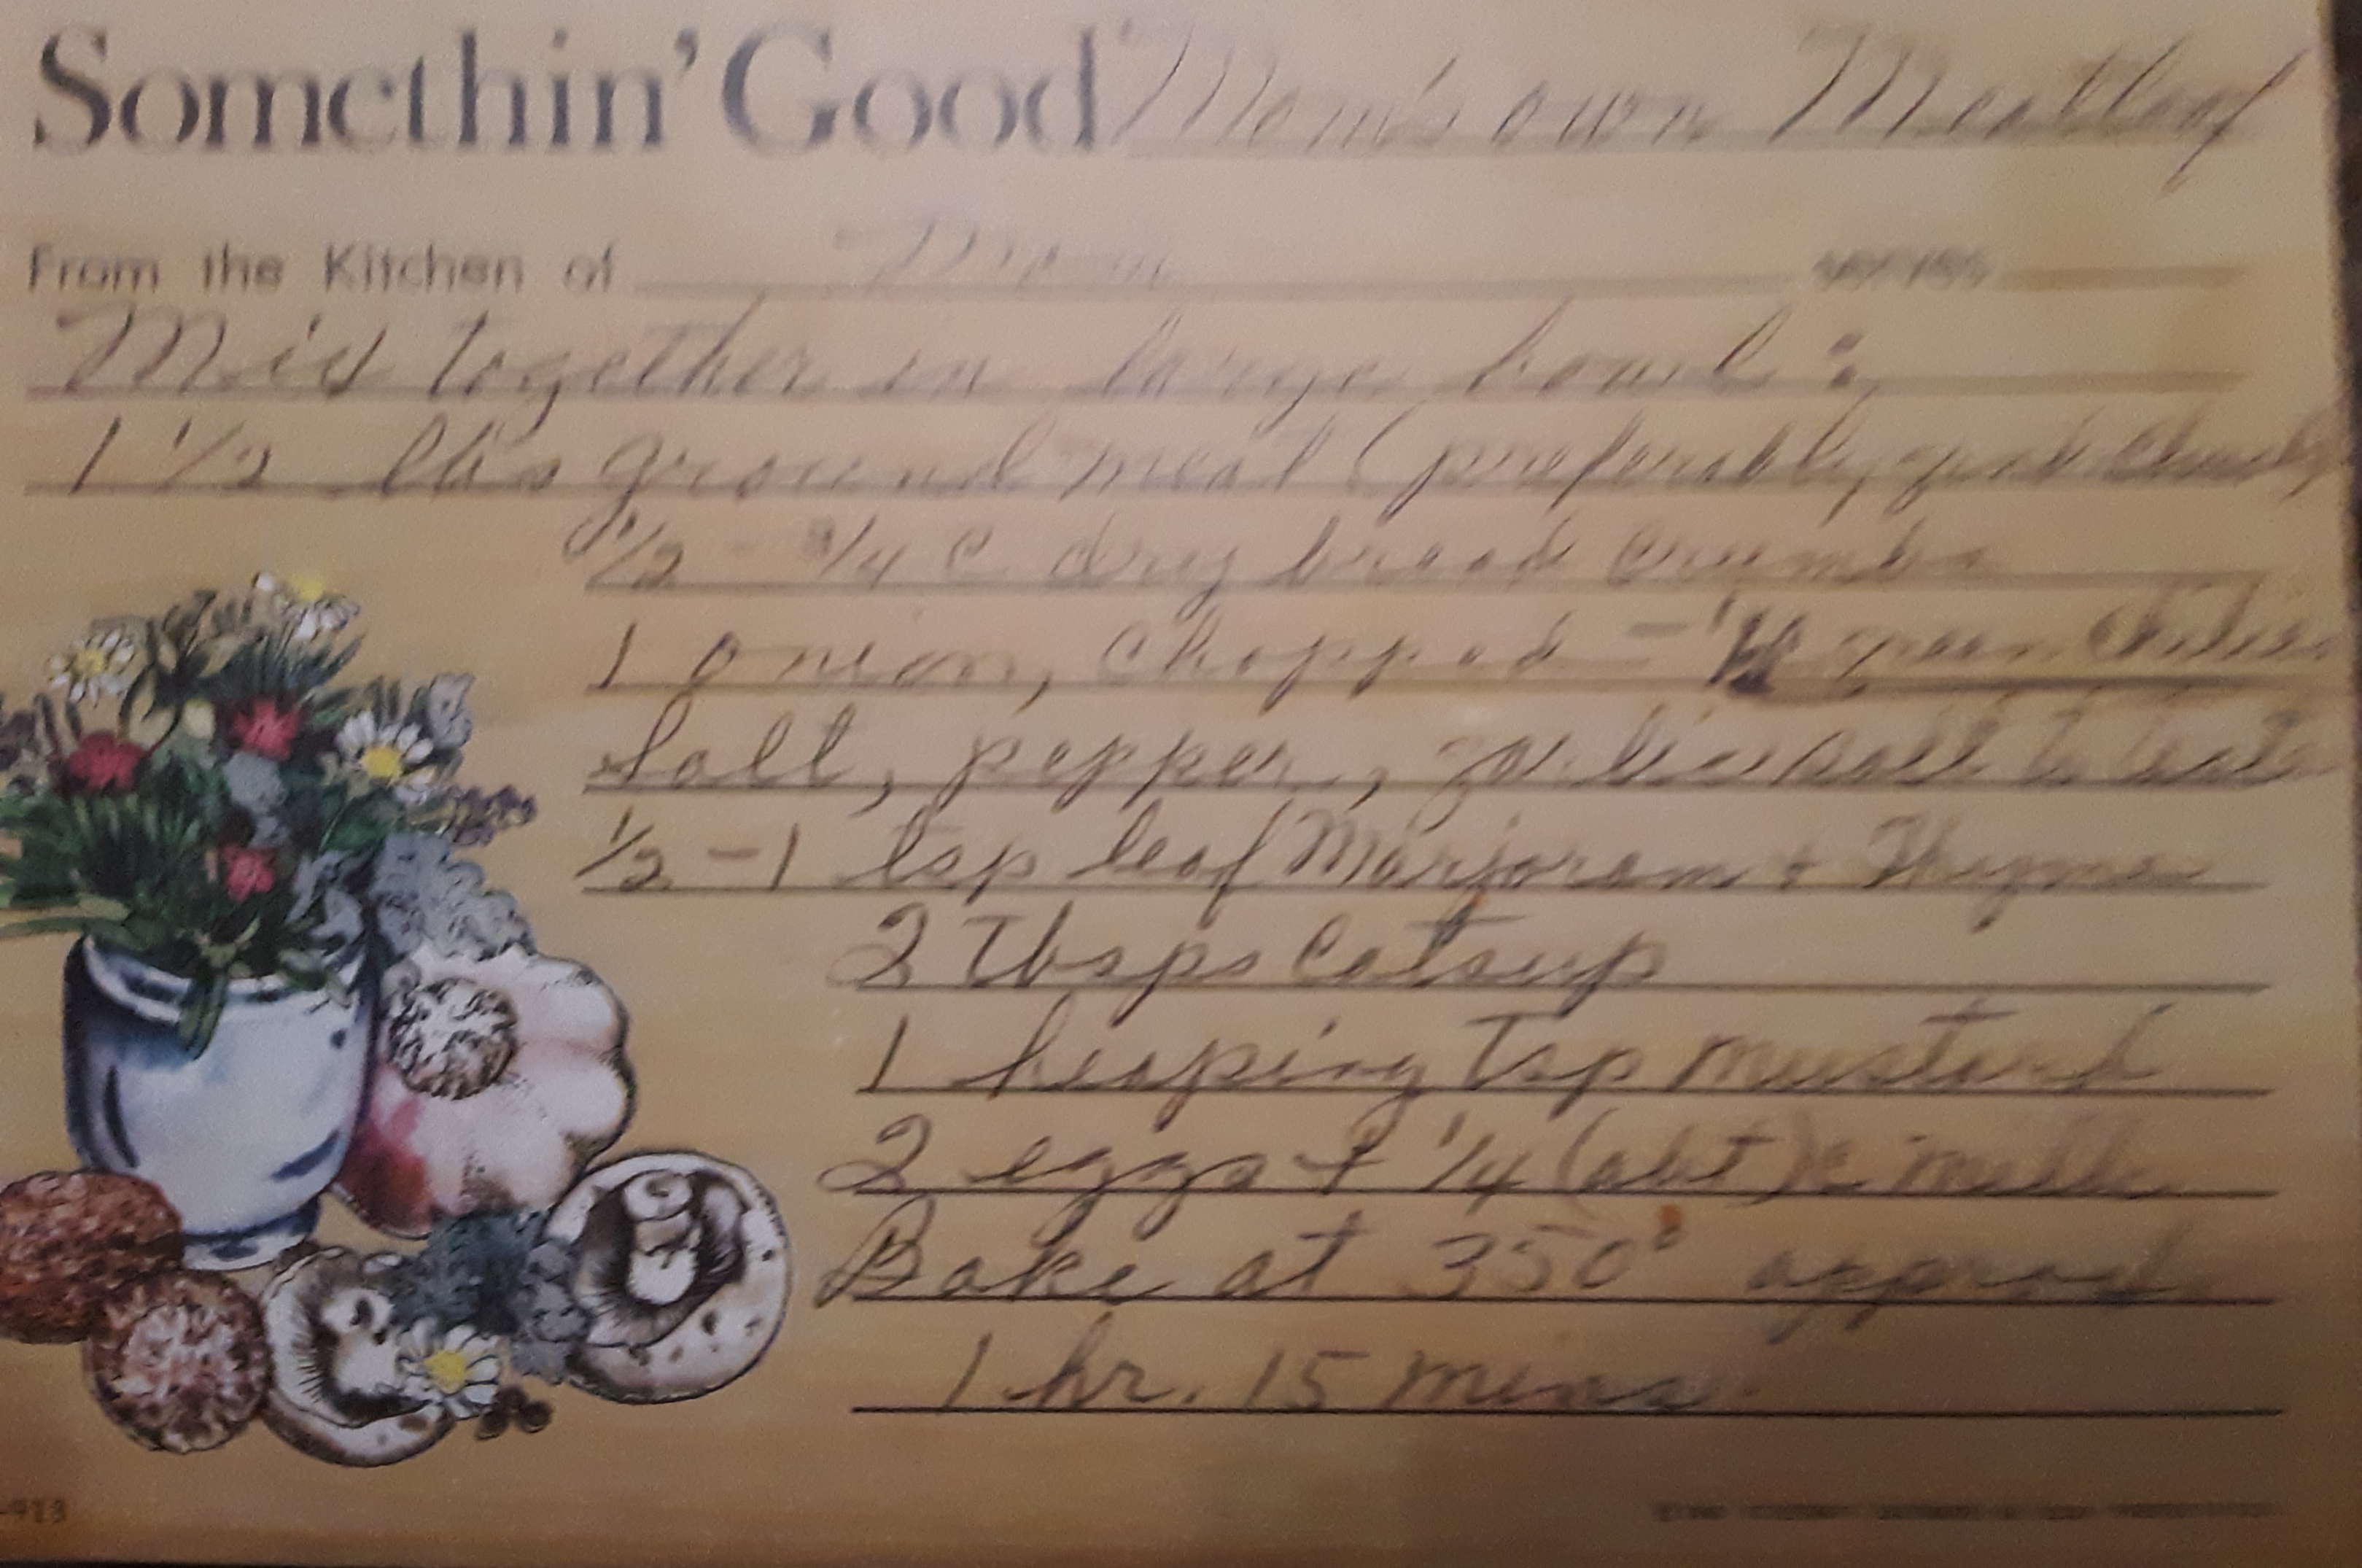 Somethin' Good Mom's own Meatloaf
From the Kitchen of Mom serves
Mix together in large bowl:
1 1/2 lbs ground meat (preferably grnd Chuck)
1/2 - 3/4 c dry bread crumbs
1 onion, chopped - green Chilies
Salt, pepper, garlic salt to taste
1/2 - 1 tsp leaf Marjoram + Thyme
2 Tbsps Catsup
1 heaping Tsp mustard
2 eggs + 1/4 (abt) c milk
Bake at 350° approx
1 hr. 15 mins
-913